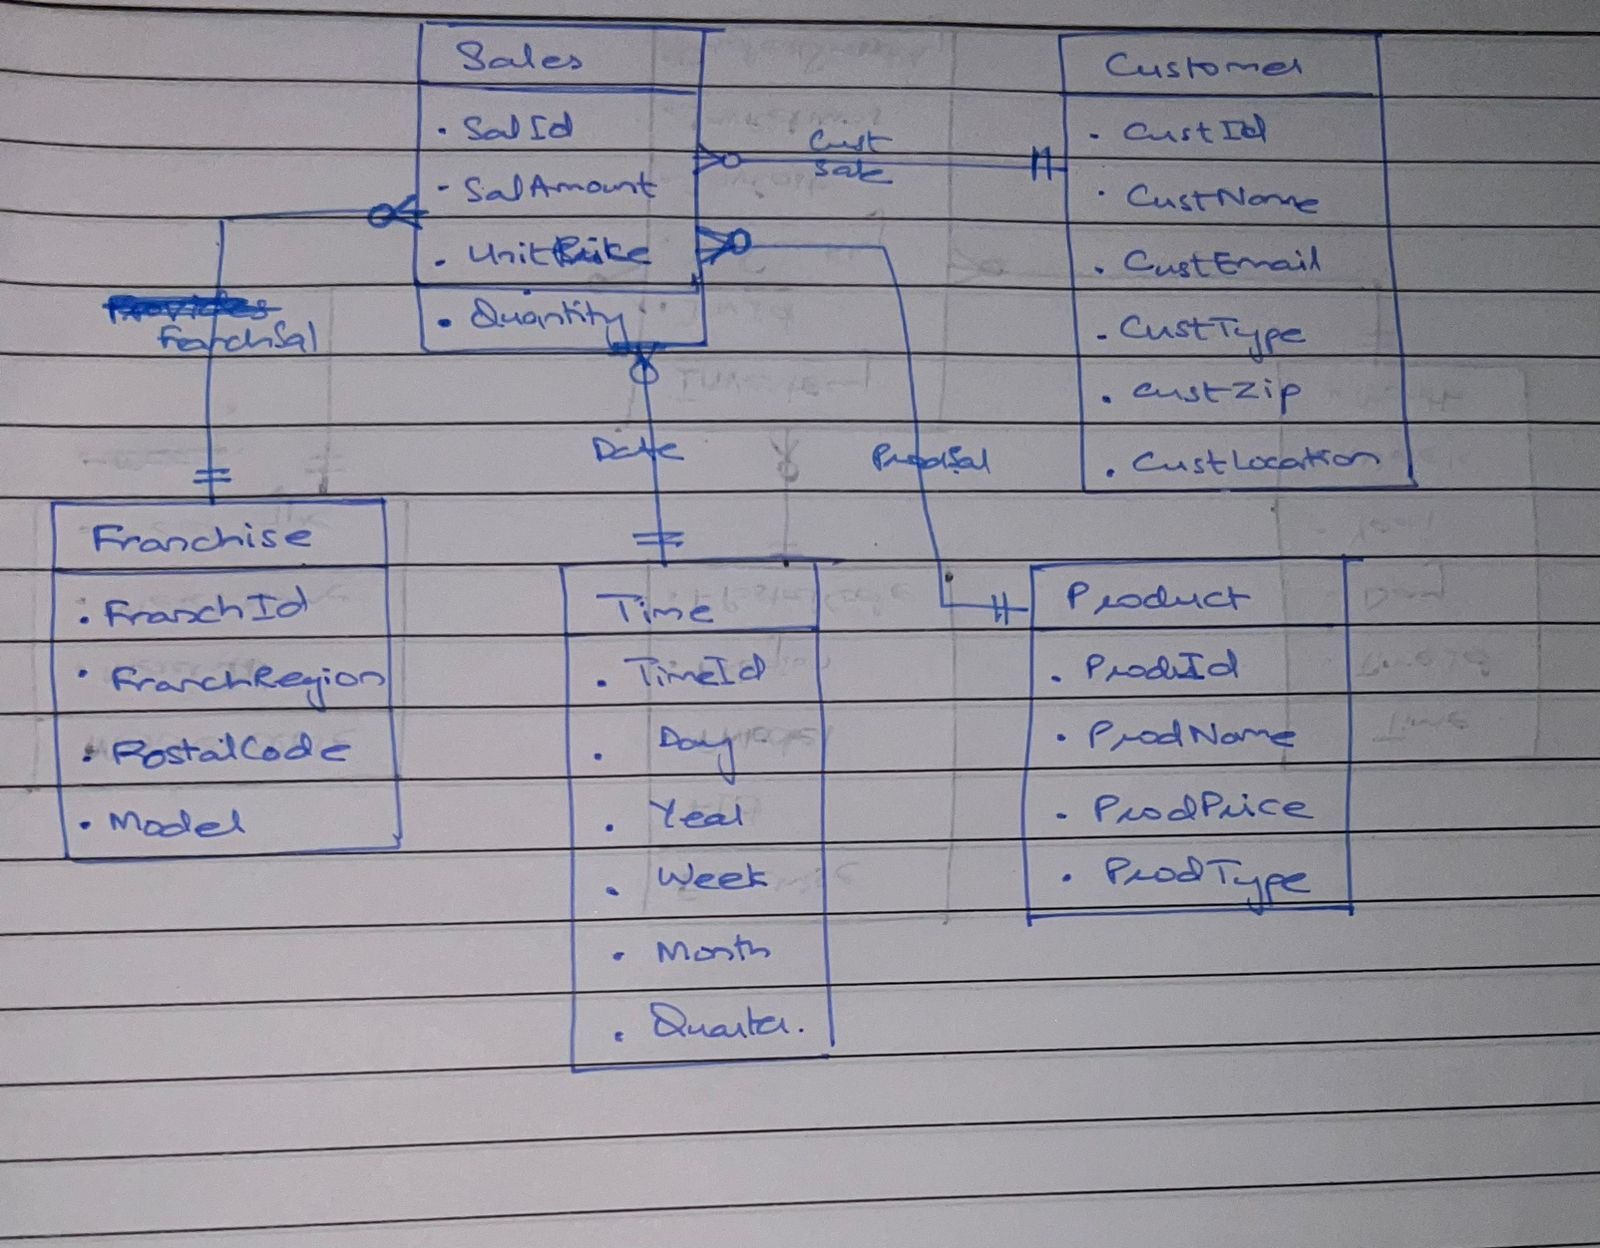 Sales
• SalId
• SalAmount
• Unit
• Quantity
Cust
Sale
Customer
• CustId
• CustName
• CustEmail
• CustType
• CustZip
• CustLocation
FranchSal
Date
ProdSal
Franchise
• FranchId
• FranchRegion
• PostalCode
• Model
Time
• TimeId
• Day
• Year
• Week
• Month
• Quarter.
Product
• ProdId
• ProdName
• ProdPrice
• ProdType